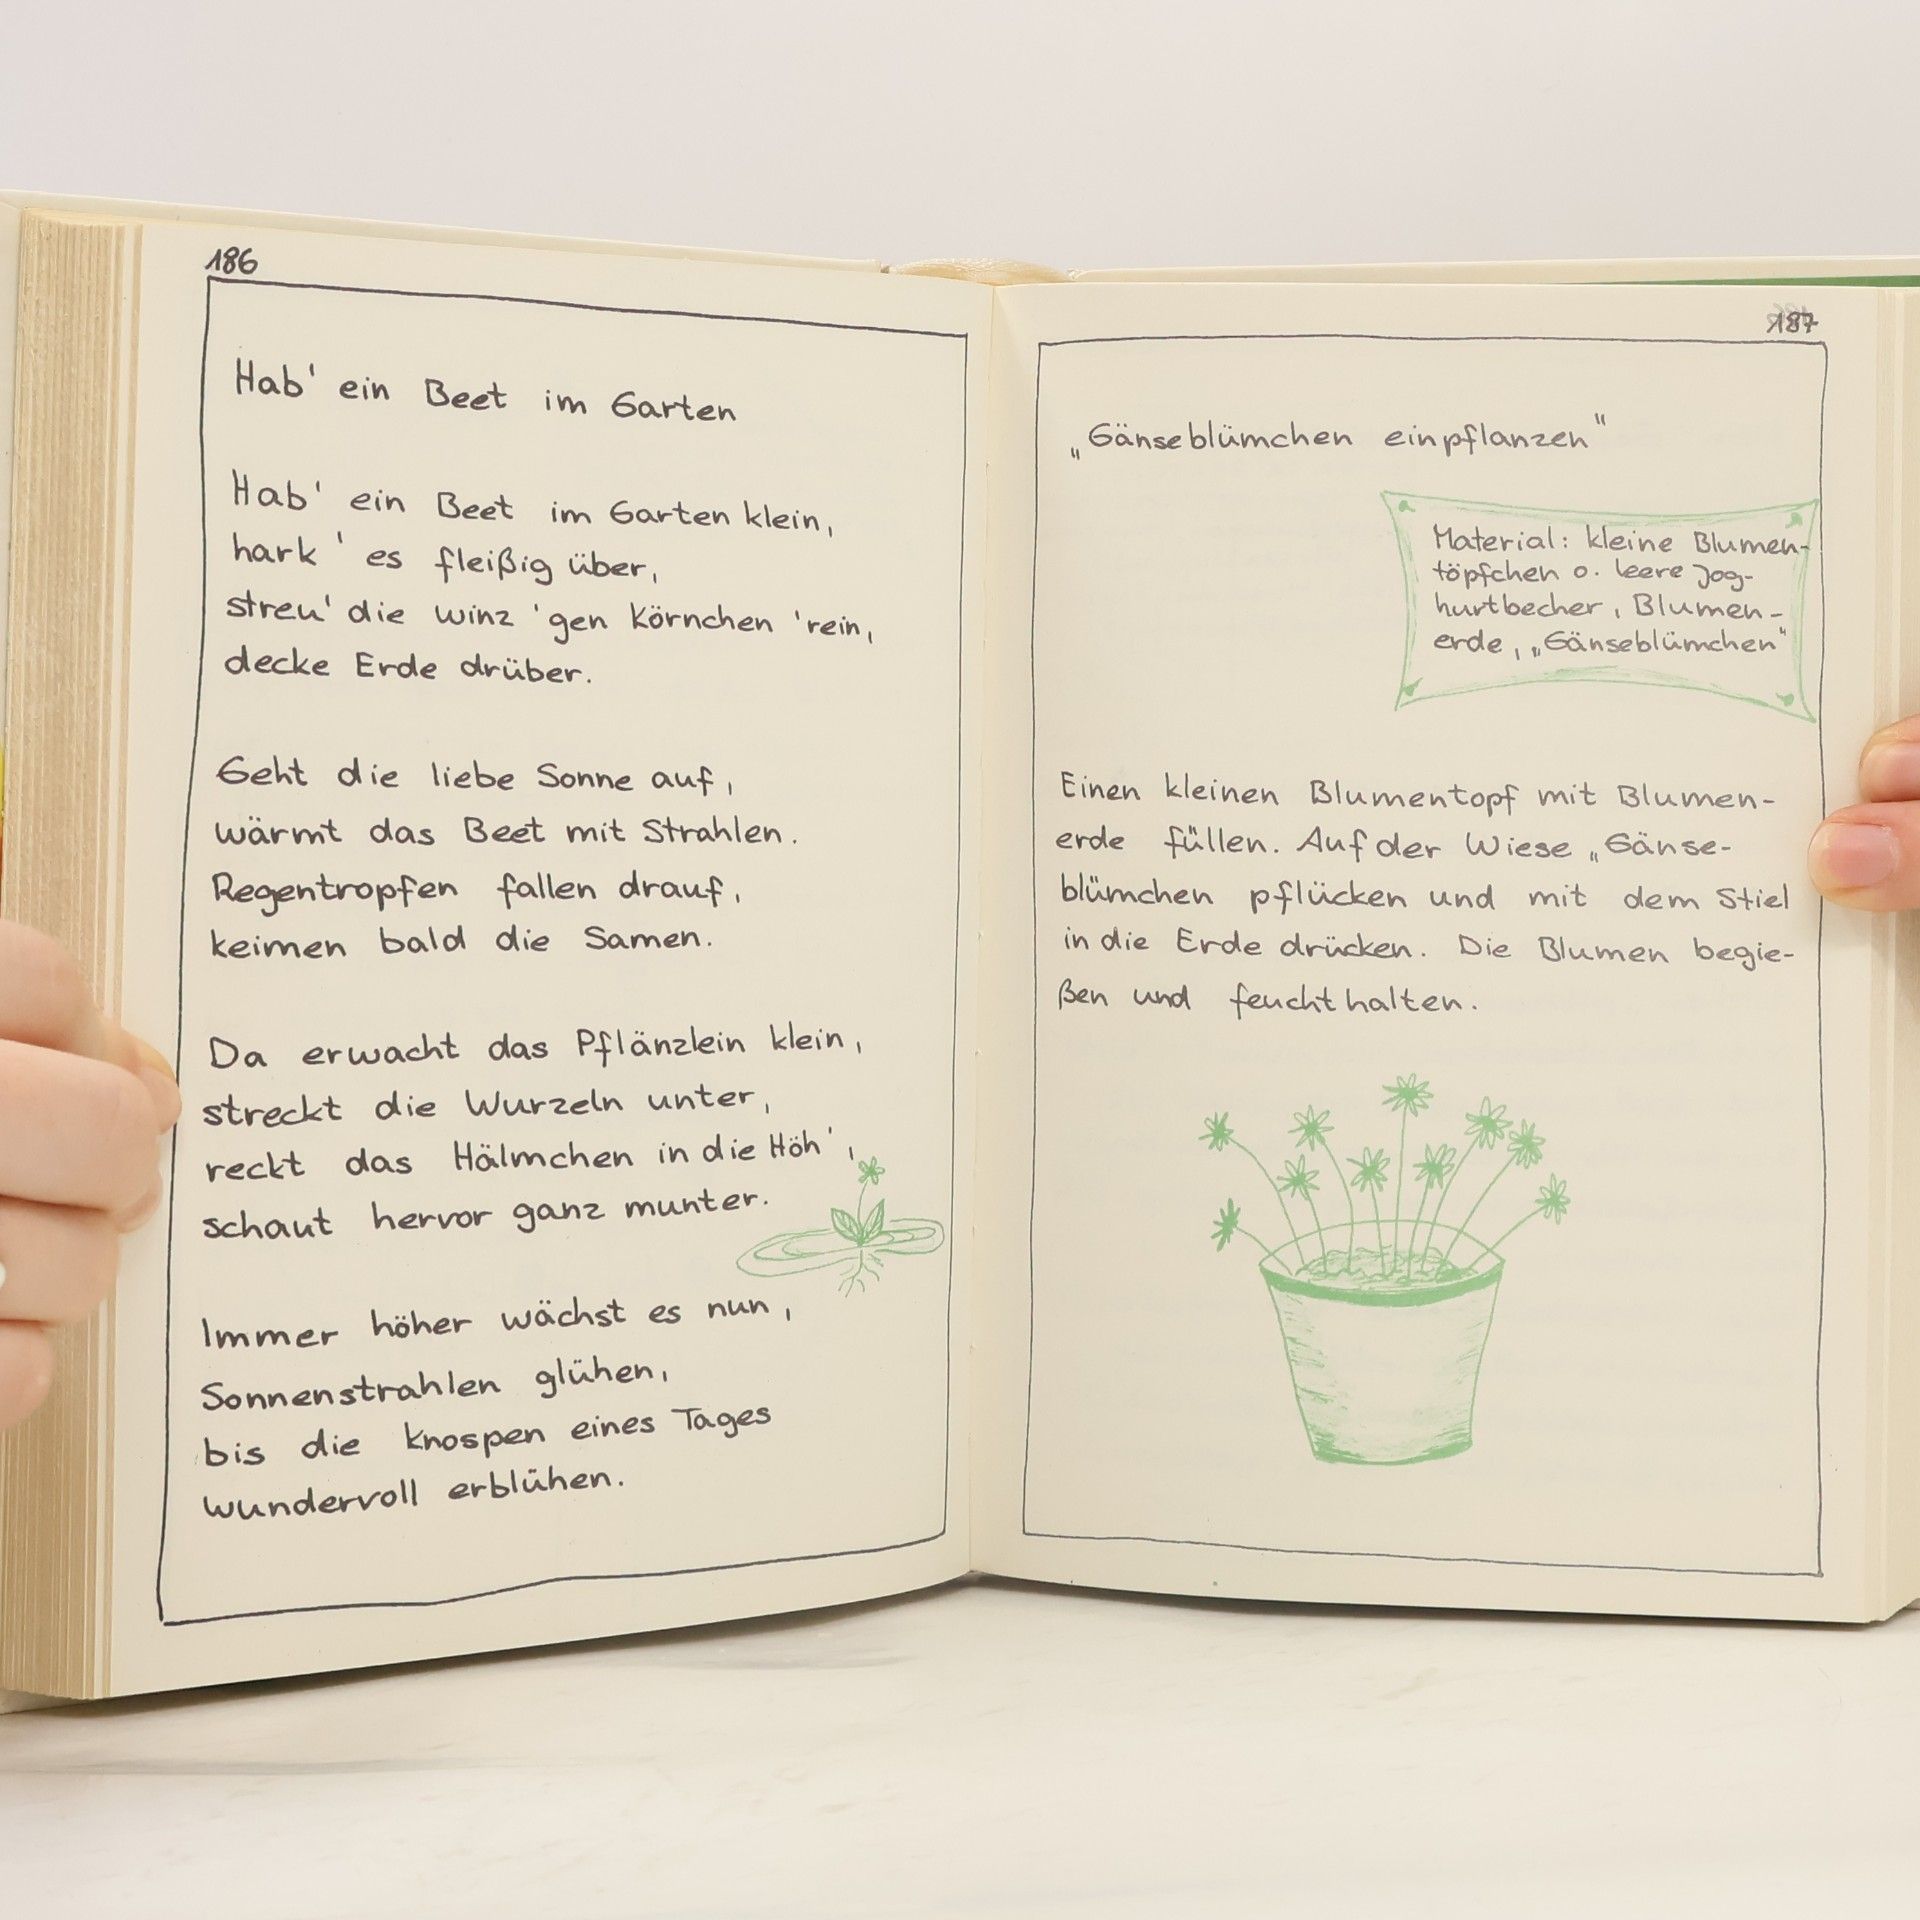 186
Hab' ein Beet im Garten
Hab' ein Beet im Garten klein,
hark' es fleißig über,
streu' die winz'gen Körnchen 'rein,
decke Erde drüber.
Geht die liebe Sonne auf,
wärmt das Beet mit Strahlen.
Regentropfen fallen drauf,
keimen bald die Samen.
Da erwacht das Pflänzlein klein,
streckt die Wurzeln unter,
reckt das Hälmchen in die Höh',
schaut hervor ganz munter.
Immer höher wächst es nun,
Sonnenstrahlen glühen,
bis die Knospen eines Tages
wundervoll erblühen.
187
„Gänseblümchen einpflanzen"
Material: kleine Blumen-
töpfchen o. leere Jog-
hurtbecher, Blumen-
erde, „Gänseblümchen"
Einen kleinen Blumentopf mit Blumen-
erde füllen. Auf der Wiese „Gänse-
blümchen pflücken und mit dem Stiel
in die Erde drücken. Die Blumen begie-
ßen und feucht halten.